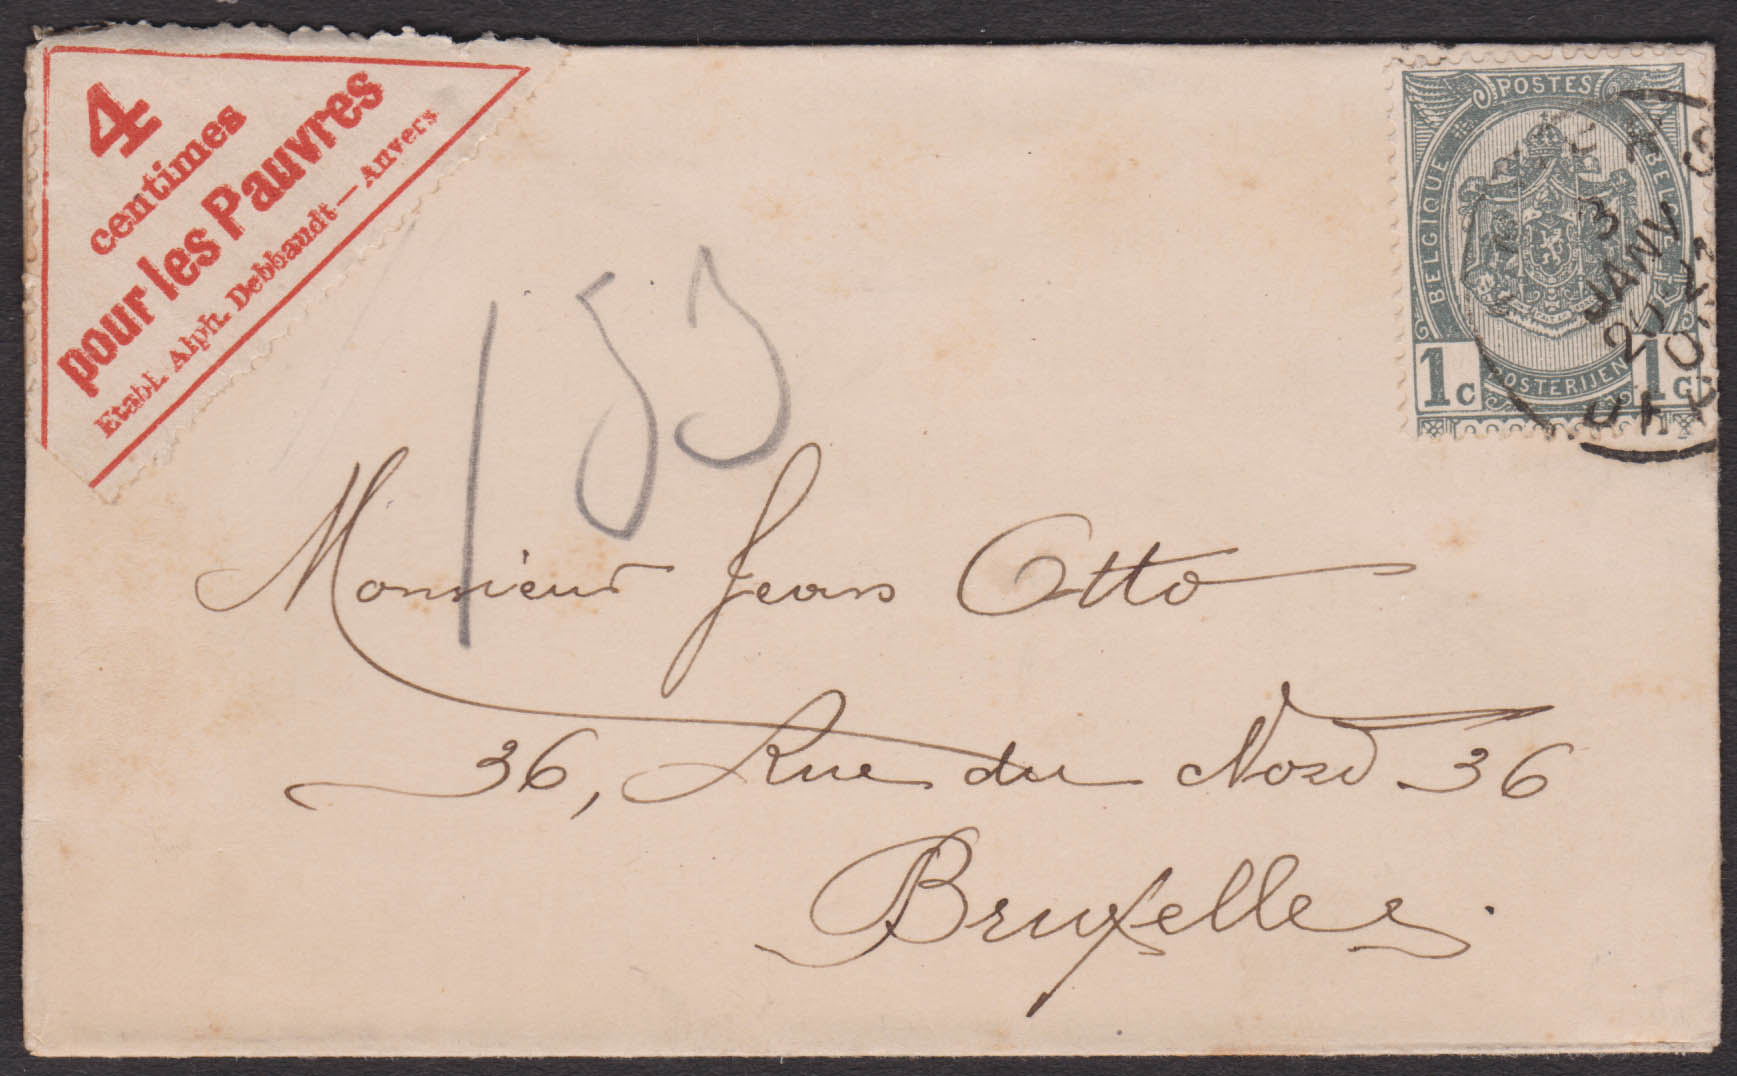 4
centimes
pour les Pauvres
Etabl. Alph. Debbaudt — Anvers
POSTES
BELGIQUE
BELGIË
1c 1c
POSTERIJEN
3
JANV
20
153
Monsieur Jean Otto
36, Rue du Nord 36
Bruxelles.